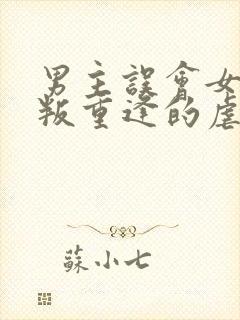 男主誤會女
叛重逢的虐
蘇小七